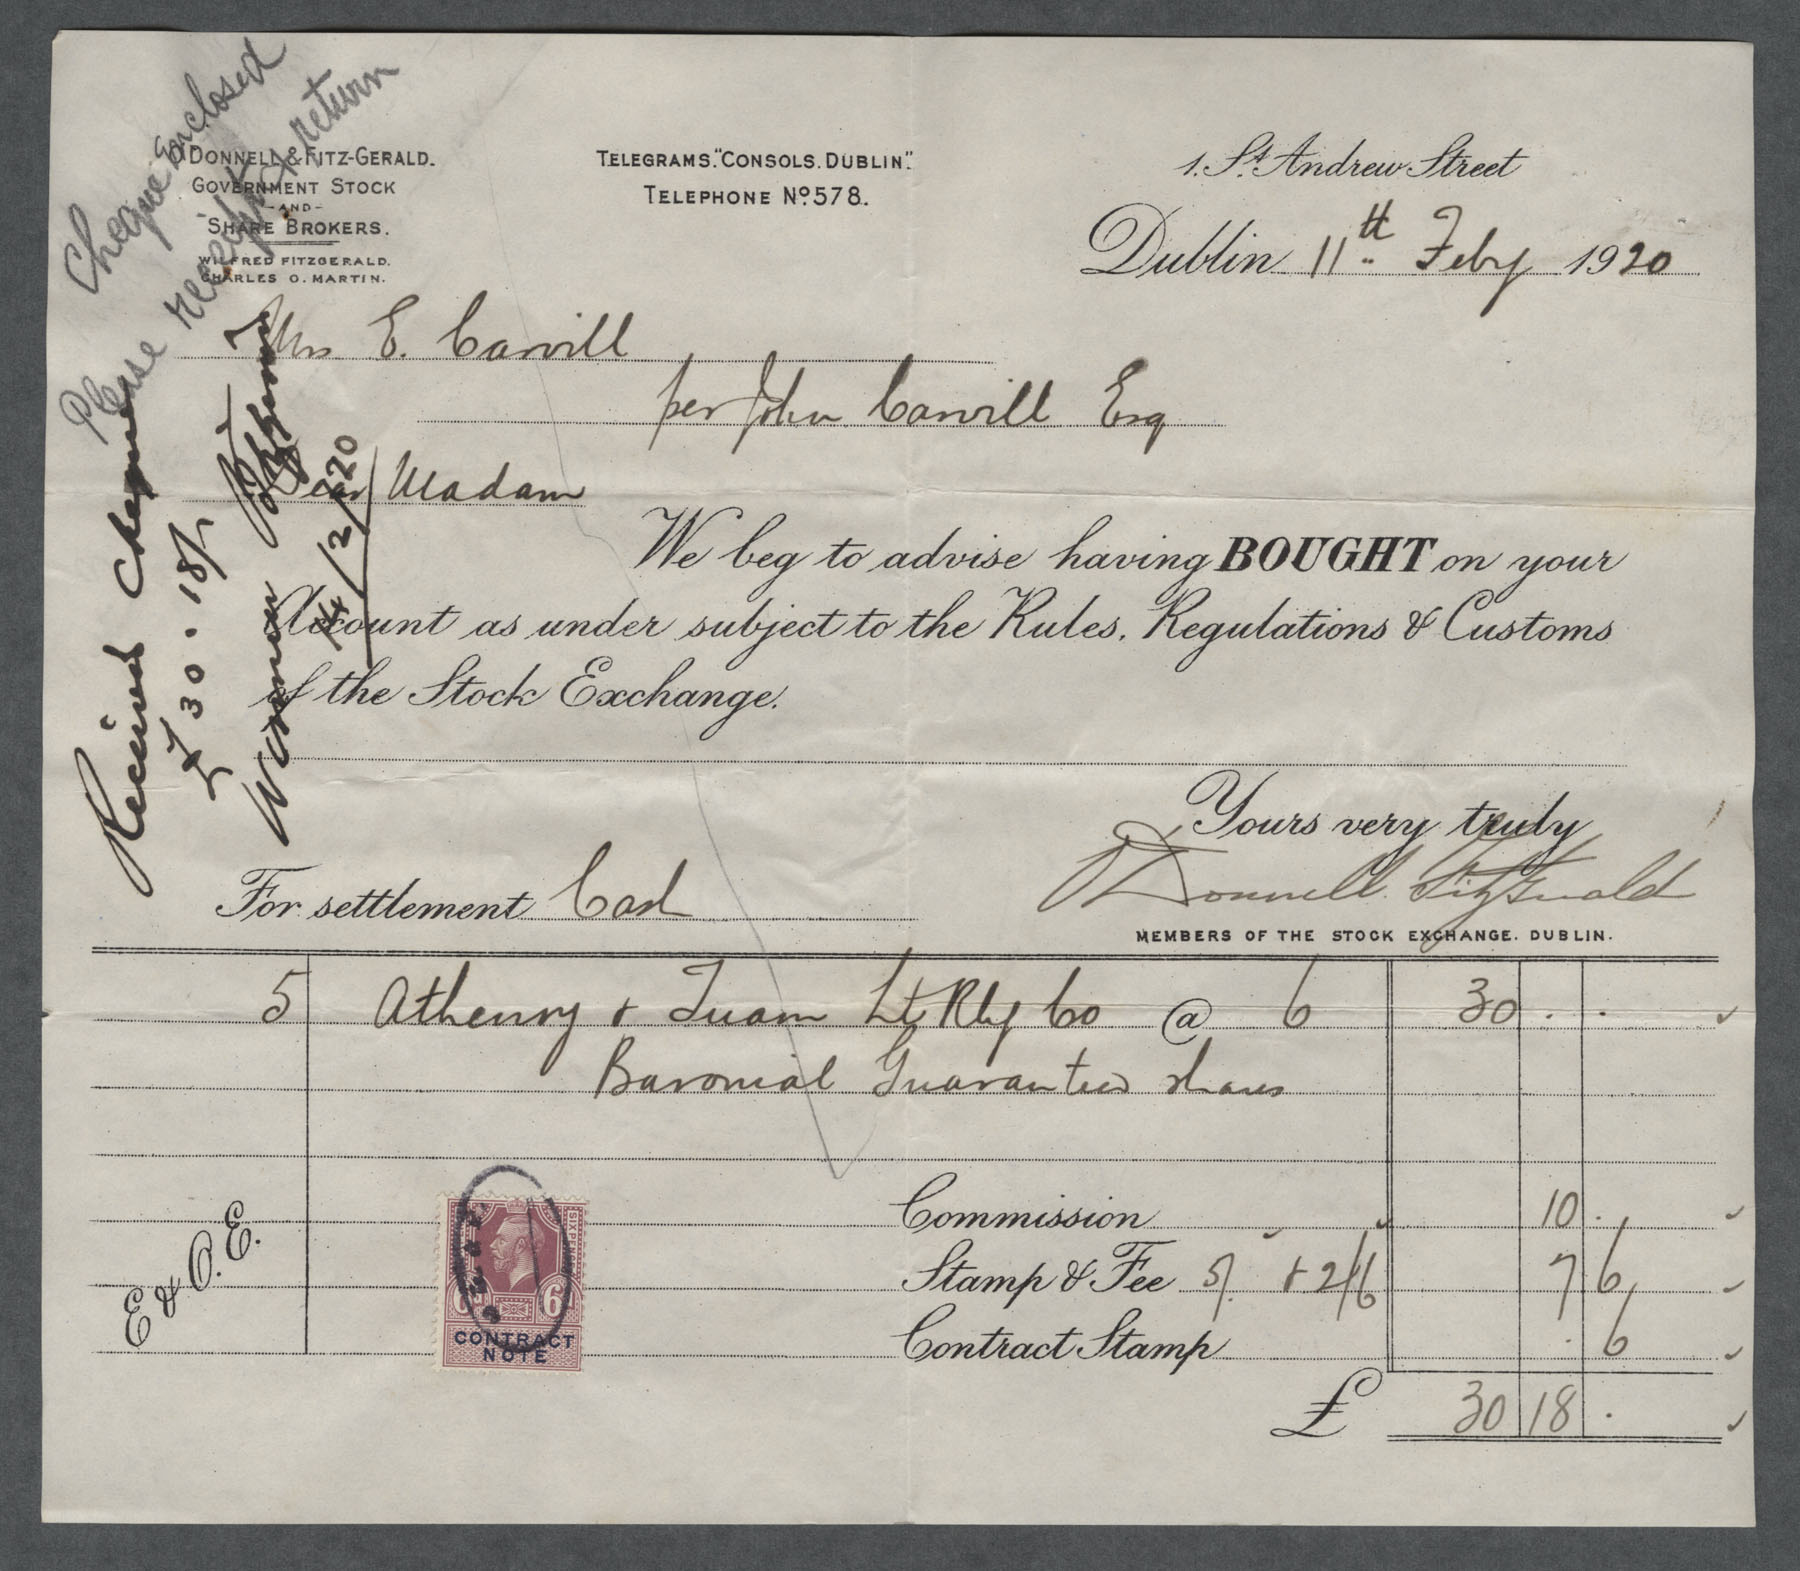 Cheque Enclosed
Please receipt & return
O'DONNELL & FITZ-GERALD.
GOVERNMENT STOCK
-AND-
SHARE BROKERS.
WILFRED FITZGERALD.
CHARLES O. MARTIN.
TELEGRAMS. "CONSOLS. DUBLIN".
TELEPHONE No. 578.
1. St. Andrew Street
Dublin 11th Feby 1920
Mrs E. Carvill
per John Carvill Esq
Dear Madam
We beg to advise having BOUGHT on your
Account as under subject to the Rules, Regulations & Customs
of the Stock Exchange.
Received Cheque
£30.18/-
14/2/20
Yours very truly
O'Donnell Fitzgerald
MEMBERS OF THE STOCK EXCHANGE. DUBLIN.
For settlement Cash
5 Athenry & Tuam Lt Rly Co @ 6 30 . .
Baronial Guaranteed shares
Commission 10 .
Stamp & Fee 5/. + 2/6 7 6
Contract Stamp . 6
£ 30 18 .
E & O. E.
SIX PENCE
6d. 6
CONTRACT
NOTE